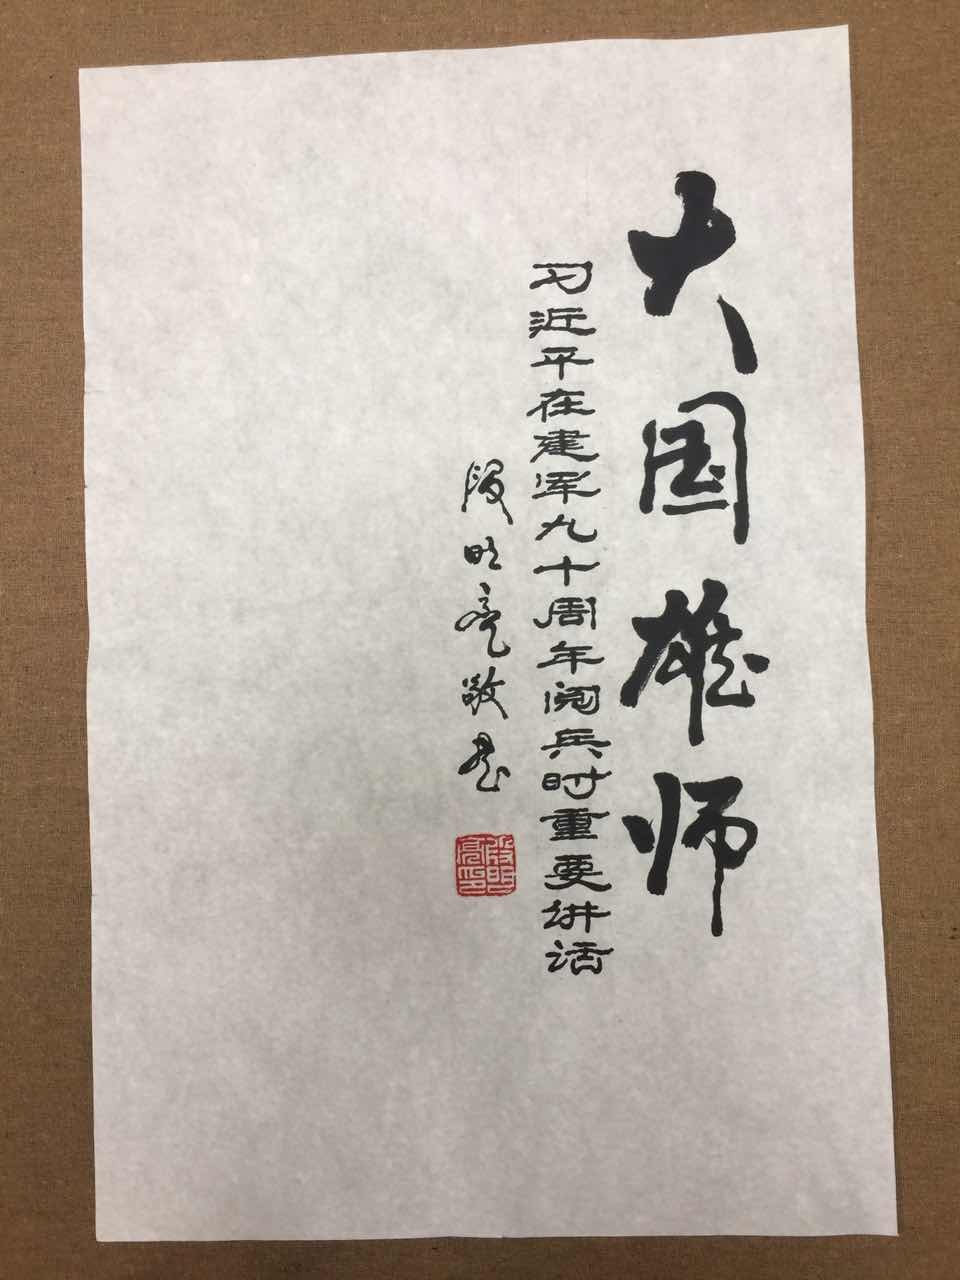 大国雄师
习近平在建军九十周年阅兵时重要讲话
段明亮敬书
段明亮印